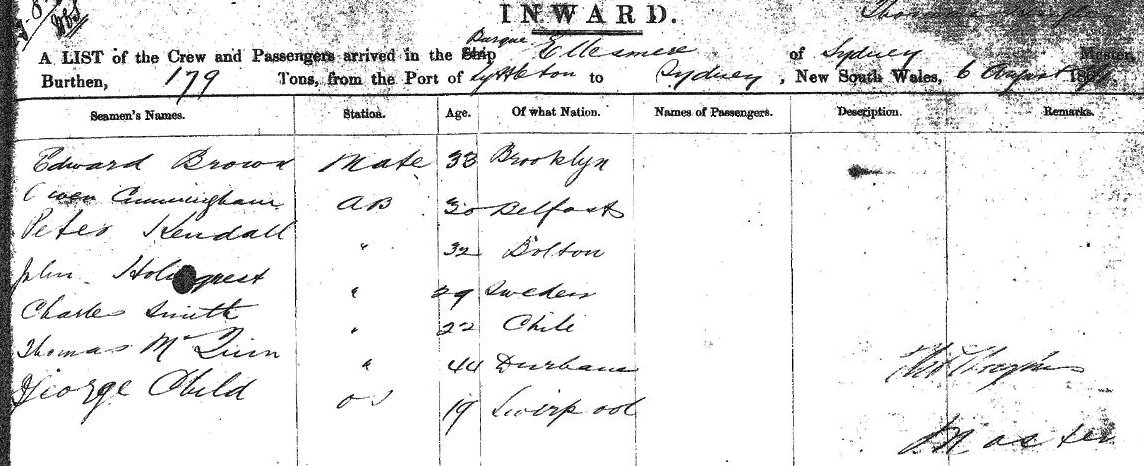 INWARD.
A LIST of the Crew and Passengers arrived in the Ship Barque Ellesmere of Sydney Master,
Burthen, 179 Tons, from the Port of Lyttleton to Sydney, New South Wales, 6 August 18
Seamen's Names. Station. Age. Of what Nation. Names of Passengers. Description. Remarks.
Edward Brown Mate 33 Brooklyn
Owen Cunningham AB 30 Belfast
Peter Kendall " 32 Bolton
John " 29 Sweden
Charles Smith " 22 Chili
Thomas McQuin " 44 Durban
George Child OS 19 Liverpool
Master